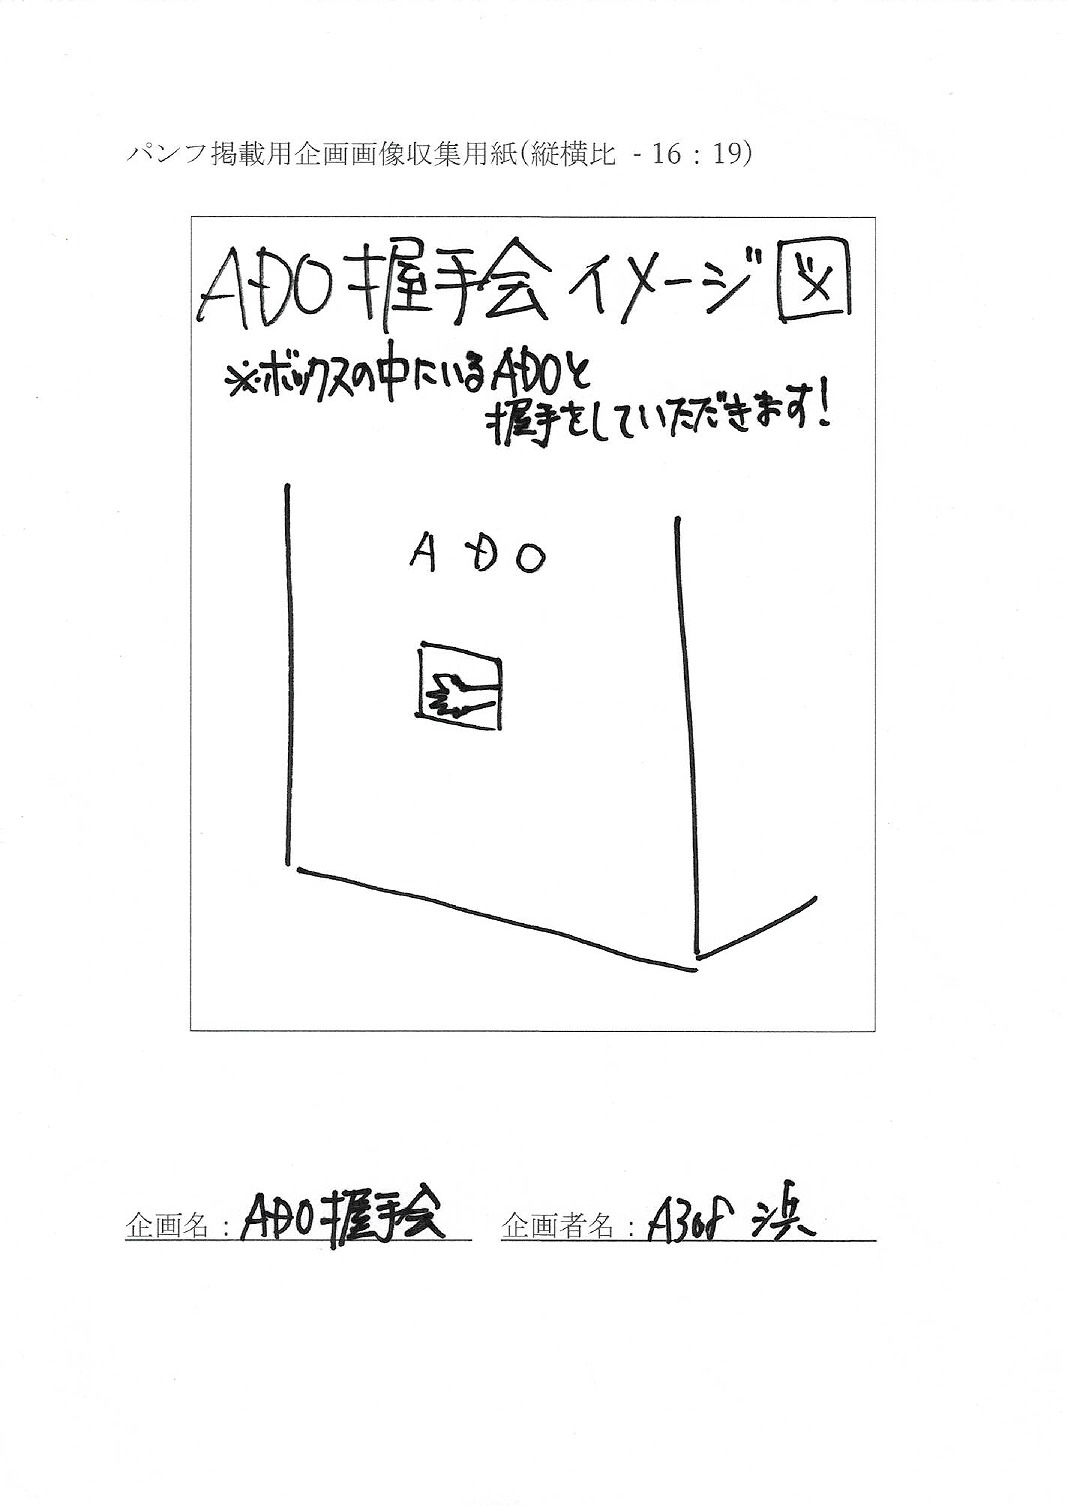 パンフ掲載用企画画像収集用紙(縦横比 - 16：19)
ADO握手会イメージ図
※ボックスの中にいるADOと
握手をしていただきます!
ADO
企画名：ADO握手会 企画者名：A308 浜